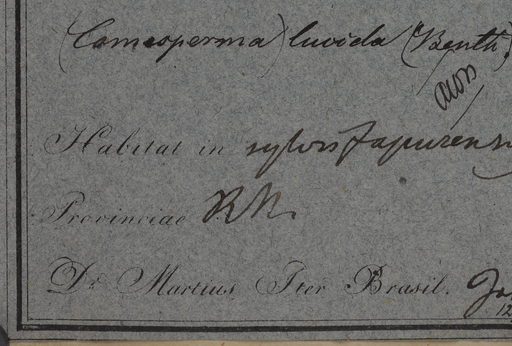 (Comesperma) lucida (Benth.)
Habitat in sylvis Japurensi
Provinciae R. N.
Dr. Martius Iter Brasil.
12